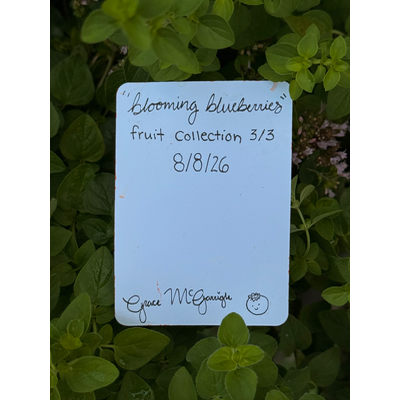 "blooming blueberries"
fruit collection 3/3
8/8/26
Grace McGonigle